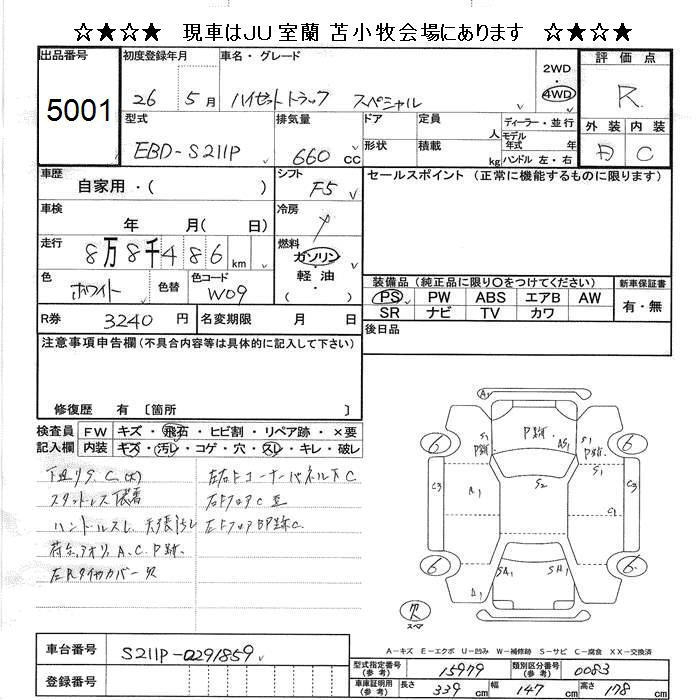 ☆★☆★ 現車はJU室蘭 苫小牧会場にあります ☆★☆★
出品番号
5001
初度登録年月
26 5月
車名・グレード
ハイゼットトラック スペシャル
2WD
4WD
評価点
R
外装 内装
C
型式
EBD-S211P
排気量
660 cc
ドア
形状
定員
人
積載
kg
ディーラー・並行
モデル
年式 年
ハンドル 左・右
車歴
自家用・( )
シフト
F5
セールスポイント (正常に機能するものに限ります)
車検
年 月( 日)
冷房
走行
8万8千486km
燃料
ガソリン
・
軽・油
( )
色
ホワイト
色替
色コード
W09
装備品 (純正品に限り〇をつけてください)
PS PW ABS エアB AW
SR ナビ TV カワ
新車保証書
有・無
R券
3240円
名変期限 月 日
後日品
注意事項申告欄(不具合内容等は具体的に記入して下さい)
修復歴 有 〔箇所 〕
検査員
記入欄
FW キズ・飛石・ヒビ割・リペア跡・×要
内装 キズ・汚レ・コゲ・穴・スレ・キレ・破レ
下廻りサ、C(大)
スタットレス装着
ハンドルスレ 天張汚レ
荷台、アオリ A、C、P跡、
左Rタイヤカバー欠
左右Fコーナーパネル下C
右Fフロア C
左Fフロア BP跡 C
A
P跡
S1
P跡
AS1
S1
P跡
6
6
S2
C1
C3
A1
C1
C3
6
6
SA1
SA1
A1
欠
スペア
A-キズ E-エクボ U-凹み W-補修跡 S-サビ C-腐食 XX-交換済
車台番号
S211P-0291859
登録番号
型式指定番号
(参考)
15979
類別区分番号
(参考)
0083
車庫証明用
(参考)
長さ 339 cm
幅 147 cm
高さ 178 cm